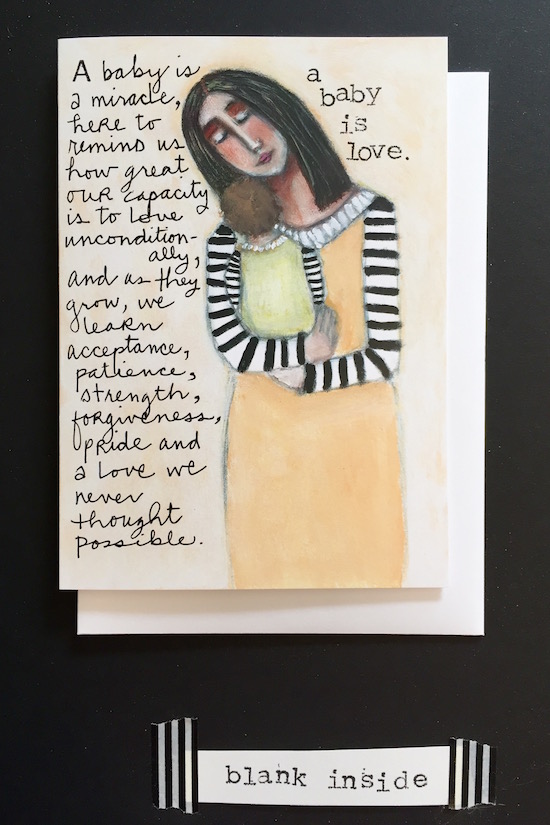 A baby is
a miracle,
here to
remind us
how great
our capacity
is to love
uncondition-
ally,
and as they
grow, we
learn
acceptance,
patience,
strength,
forgiveness,
pride and
a love we
never
thought
possible.
a
baby
is
love.
blank inside